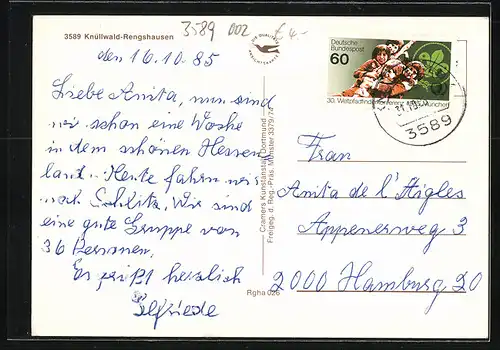 3589 Knüllwald-Rengshausen
3589 002
€ 4.-
den 16.10.85
Liebe Anita, nun sind
wir schon eine Woche
in dem schönen Hessen
land. Heute fahren wir
nach Schlitz. Wir sind
eine gute Gruppe von
36 Personen.
Es grüßt herzlich
Elfriede
Cramers Kunstanstalt, Dortmund
Freigeg. d. Reg.-Präs. Münster 3379/74
Rgha 026
Deutsche
Bundespost
60
30. Weltpfadfinderkonferenz München
3589
Frau
Anita de l'Aigles
Appenerweg 3
2000 Hamburg 20